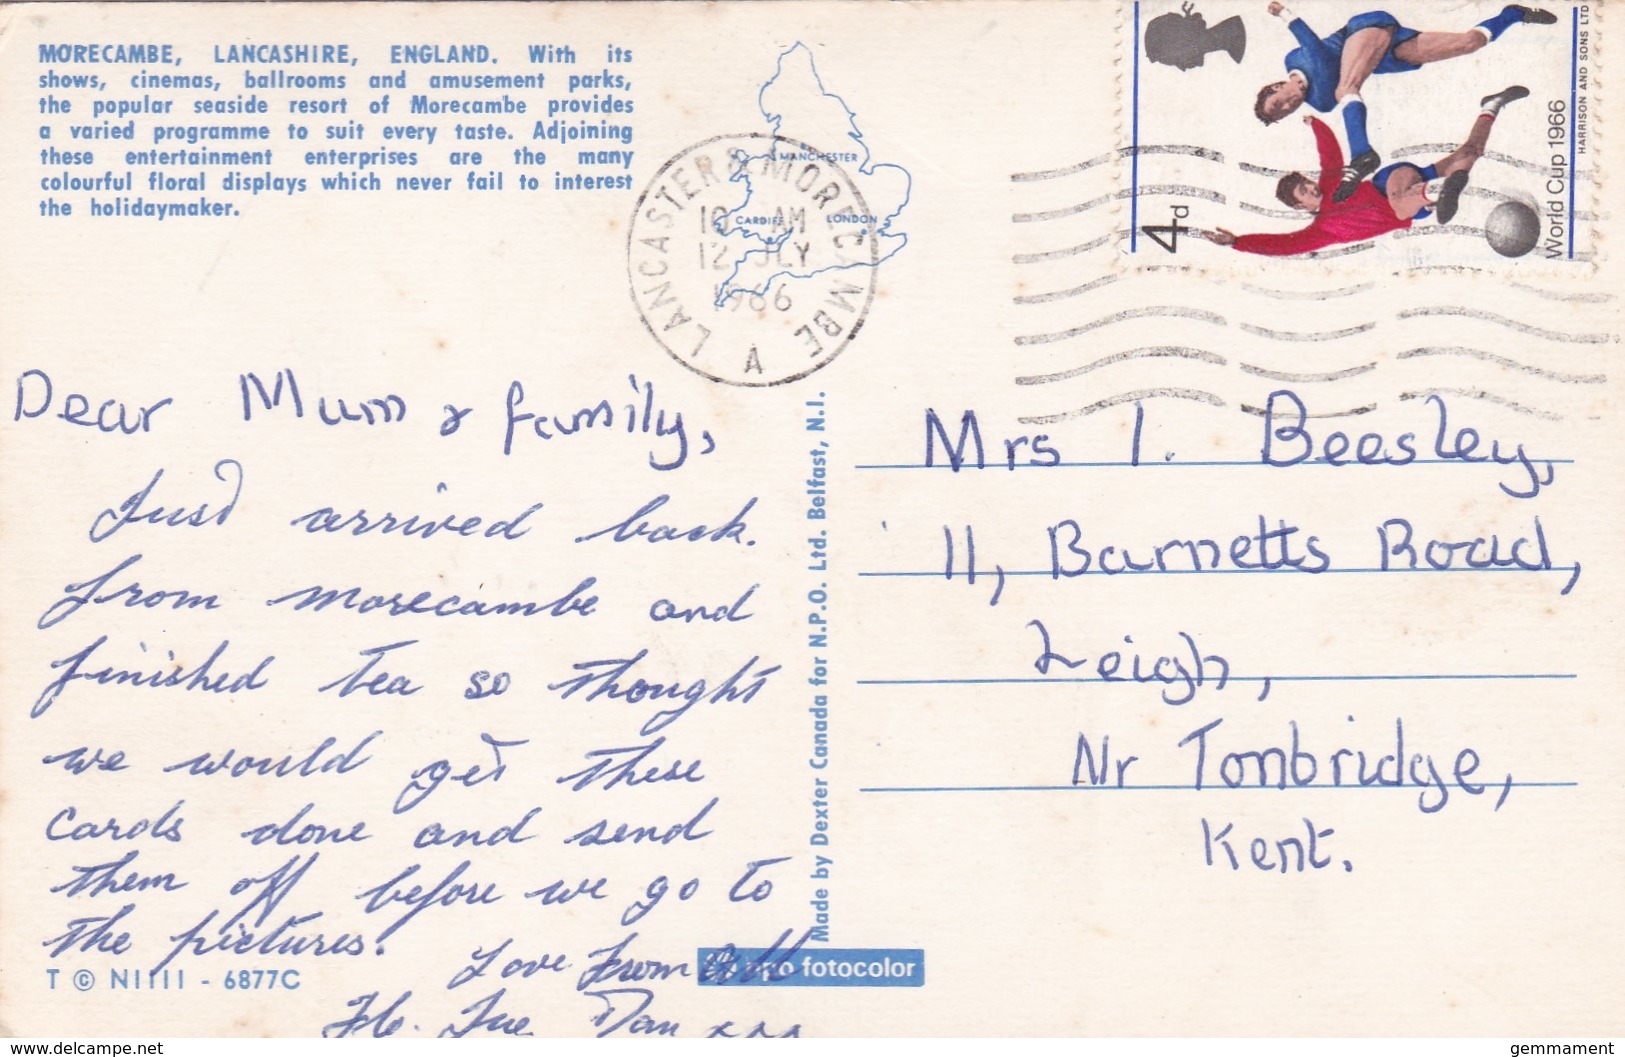 MORECAMBE, LANCASHIRE, ENGLAND. With its
shows, cinemas, ballrooms and amusement parks,
the popular seaside resort of Morecambe provides
a varied programme to suit every taste. Adjoining
these entertainment enterprises are the many
colourful floral displays which never fail to interest
the holidaymaker.
MANCHESTER
CARDIFF
LONDON
LANCASTER & MORECAMBE
AM
12 JLY
1966
A
4d
World Cup 1966
HARRISON AND SONS LTD
Dear Mum & family,
Just arrived back.
from morecambe and
finished tea so thought
we would get these
cards done and send
them off before we go to
the pictures.
Love from All
Sue Dan xxx
T © N1111 - 6877C
Made by Dexter Canada for N.P.O. Ltd. Belfast, N.I.
npo fotocolor
Mrs I. Beesley,
11, Barnetts Road,
Leigh,
Nr Tonbridge,
Kent.
www.delcampe.net
gemmament